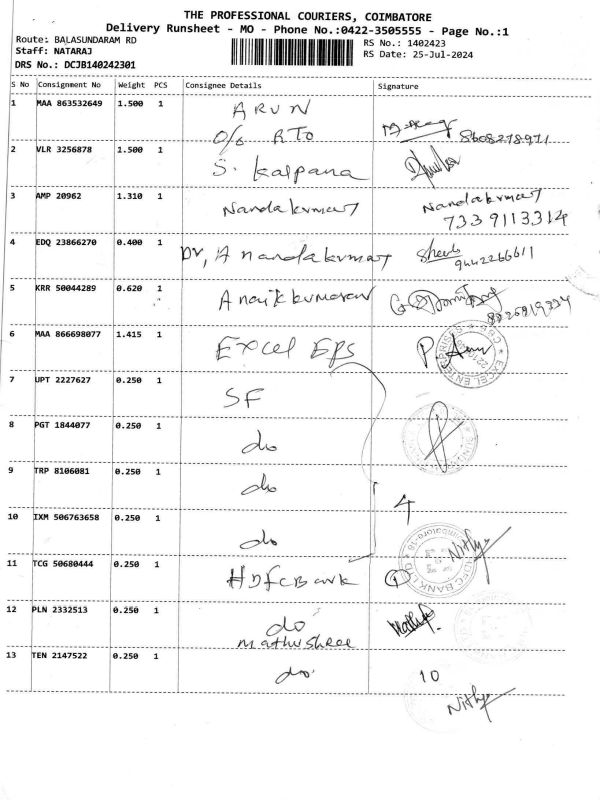 THE PROFESSIONAL COURIERS, COIMBATORE
Delivery Runsheet - MO - Phone No.:0422-3505555 - Page No.:1
Route: BALASUNDARAM RD
Staff: NATARAJ
DRS No.: DCJB140242301
RS No.: 1402423
RS Date: 25-Jul-2024
S No Consignment No Weight PCS Consignee Details Signature
1 MAA 863532649 1.500 1 ARUN
O/o RTO 8608278971
2 VLR 3256878 1.500 1 S. Kalpana
3 AMP 20962 1.310 1 Nandakumar Nandakumar
7339113314
4 EDQ 23866270 0.400 1 Dr, Anandakumar
9442266611
5 KRR 50044289 0.620 1
6 MAA 866698077 1.415 1 Excel EPS
EXCEL ENTERPRISES
7 UPT 2227627 0.250 1 SF
8 PGT 1844077 0.250 1 do
9 TRP 8106081 0.250 1 do
4
10 IXM 506763658 0.250 1 do
11 TCG 50680444 0.250 1 HDFC Bank
HDFC BANK LTD
Nithy
12 PLN 2332513 0.250 1 do
Mathushree
13 TEN 2147522 0.250 1 do 10
Nithy